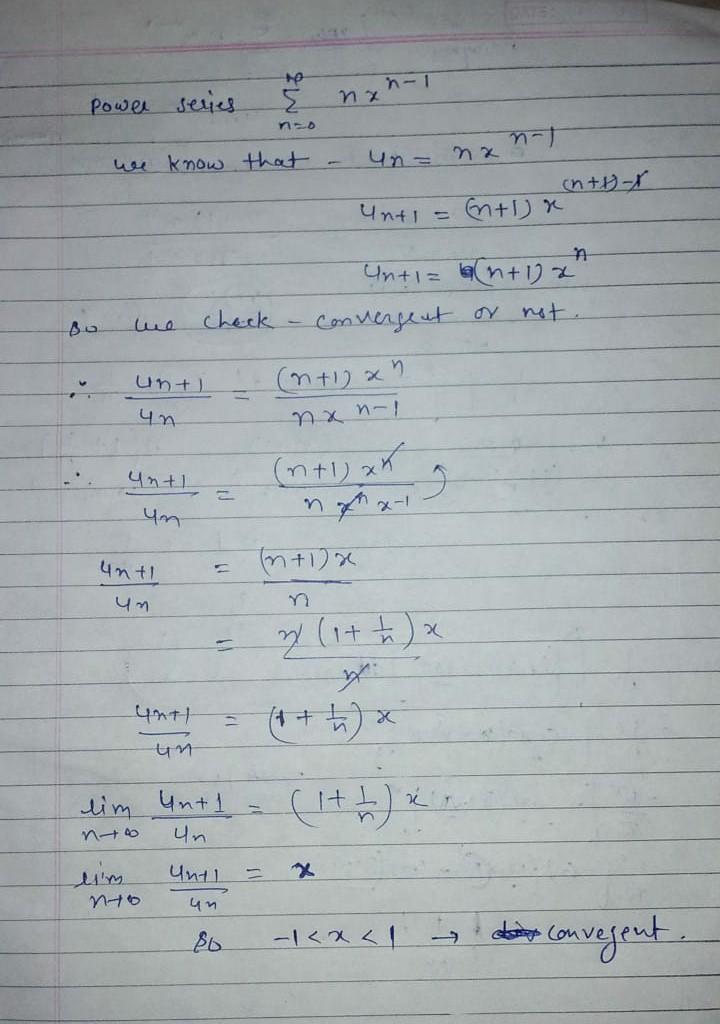 DATE:
Power series ∞ Σ n=0 n x^{n-1}
we know that - un = n x^{n-1}
un+1 = (n+1) x^{(n+1)-1}
un+1 = (n+1) x^n
so we check - convergent or not.
∴ un+1/un = (n+1) x^n / n x^{n-1}
∴ un+1/un = (n+1) x^n / n x^n x^{-1}
un+1/un = (n+1) x / n
= n (1 + 1/n) x / n
un+1/un = (1 + 1/n) x
lim n→∞ un+1/un = (1 + 1/n) x
lim n→∞ un+1/un = x
so -1 < x < 1 → convegent.